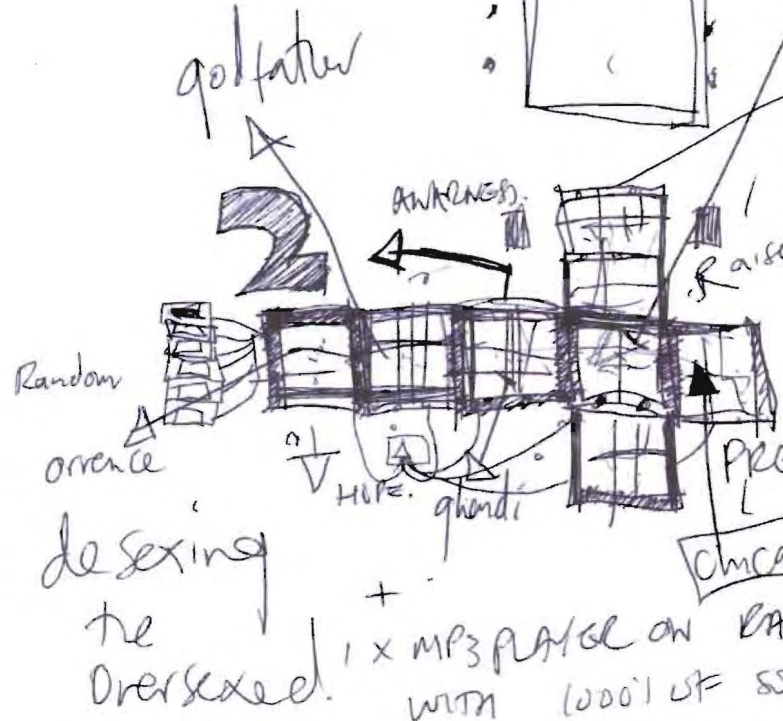 godfather
2
AWARNESS.
Raise
Random
orrence
HOPE.
ghandi
PRO
desexing
the
Oversexed.
+
1 X MP3 PLAYER ON RA
WITH 1000'S OF